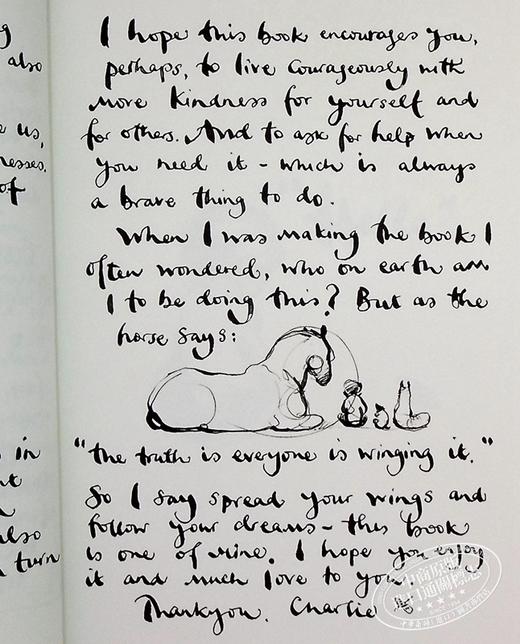 g
also
e us,
nesses.
of
I hope this book encourages you,
perhaps, to live courageously with
more kindness for yourself and
for others. And to ask for help when
you need it - which is always
a brave thing to do.
When I was making the book I
often wondered, who on earth am
I to be doing this? But as the
horse says:
in
also
turn
"the truth is everyone is winging it."
So I say spread your wings and
follow your dreams - this book
is one of mine. I hope you enjoy
it and much love to you
Thankyou. Charlie